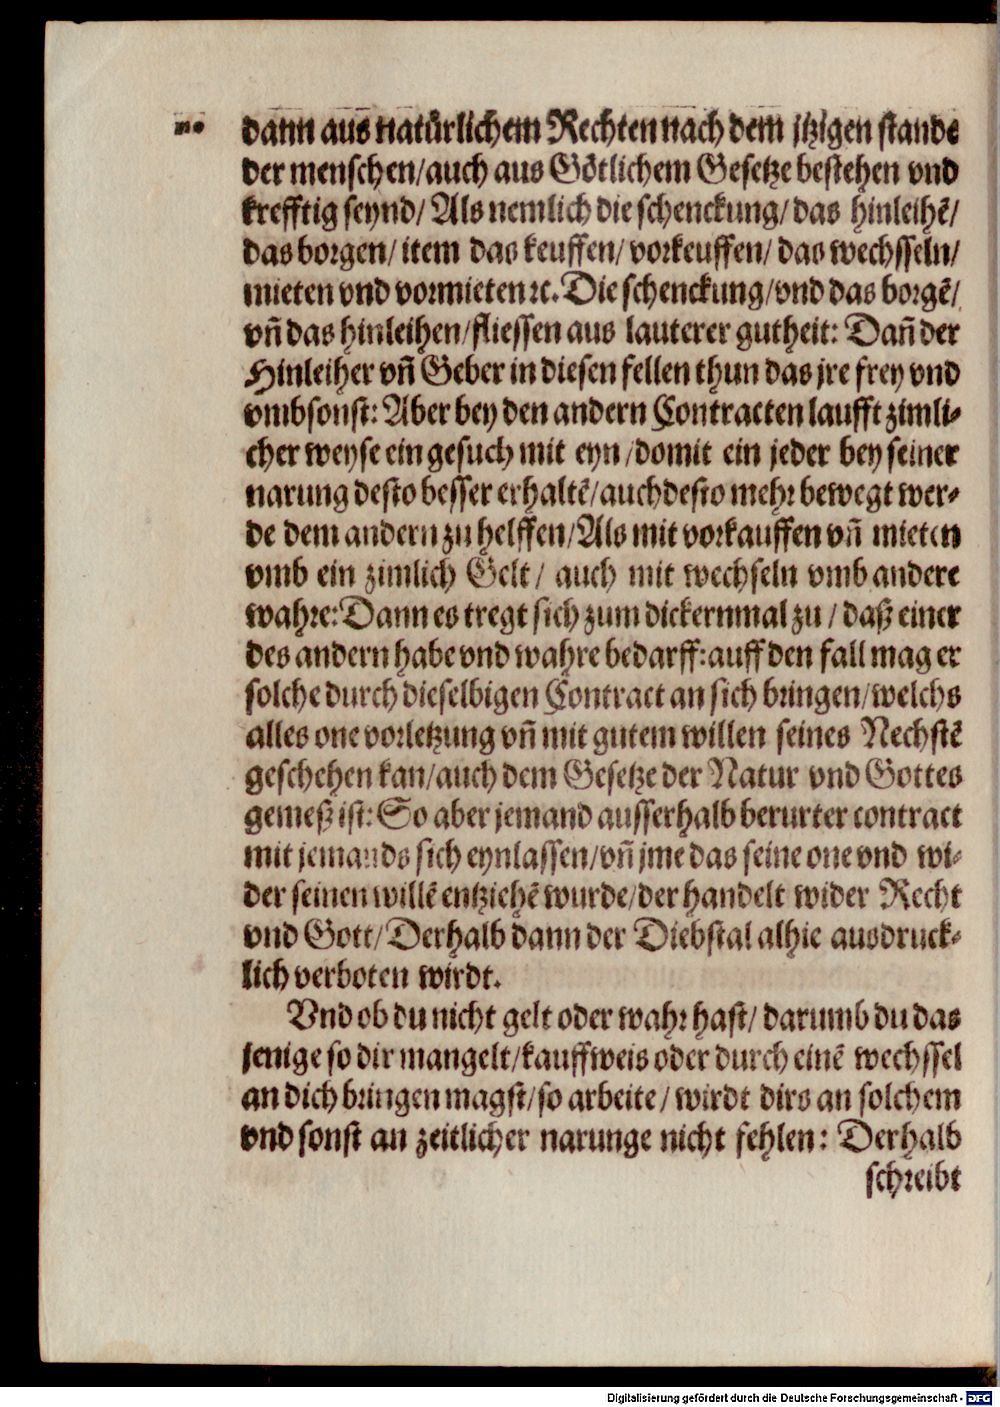 dann aus natůrlichem Rechten nach dem jtzigen stande
der menschen/auch aus Gőtlichem Gesetze bestehen vnd
krefftig seynd/ Als nemlich die schenckung/ das hinleihē/
das borgen/ item das keuffen/ vorkeuffen/ das wechsseln/
mieten vnd vormieten ꝛc. Die schenckung/vnd das borgē/
vñ das hinleihen/fliessen aus lauterer gutheit: Dañ der
Hinleiher vñ Geber in diesen fellen thun das jre frey vnd
vmbsonst: Aber bey den andern Contracten laufft zimli-
cher weyse ein gesuch mit eyn/domit ein jeder bey seiner
narung desto besser erhaltē/auch desto mehr bewegt wer-
de dem andern zu helffen/Als mit vorkauffen vñ mieten
vmb ein zimlich Gelt/ auch mit wechseln vmb andere
wahre: Dann es tregt sich zum dickernmal zu/ daß einer
des andern habe vnd wahre bedarff: auff den fall mag er
solche durch dieselbigen Contract an sich bringen/welchs
alles one vorletzung vñ mit gutem willen seines Nechstē
geschehen kan/auch dem Gesetze der Natur vnd Gottes
gemeß ist: So aber jemand ausserhalb berurter contract
mit jemands sich eynlassen/vñ jme das seine one vnd wi-
der seinen willē entziehē wurde/der handelt wider Recht
vnd Gott/ Derhalb dann der Diebstal alhie ausdruck-
lich verboten wirdt.
Vnd ob du nicht gelt oder wahr hast/ darumb du das
jenige so dir mangelt/kauffweis oder durch einē wechssel
an dich bringen magst/so arbeite/ wirdt dirs an solchem
vnd sonst an zeitlicher narunge nicht fehlen: Derhalb
schreibt
Digitalisierung gefördert durch die Deutsche Forschungsgemeinschaft - DFG